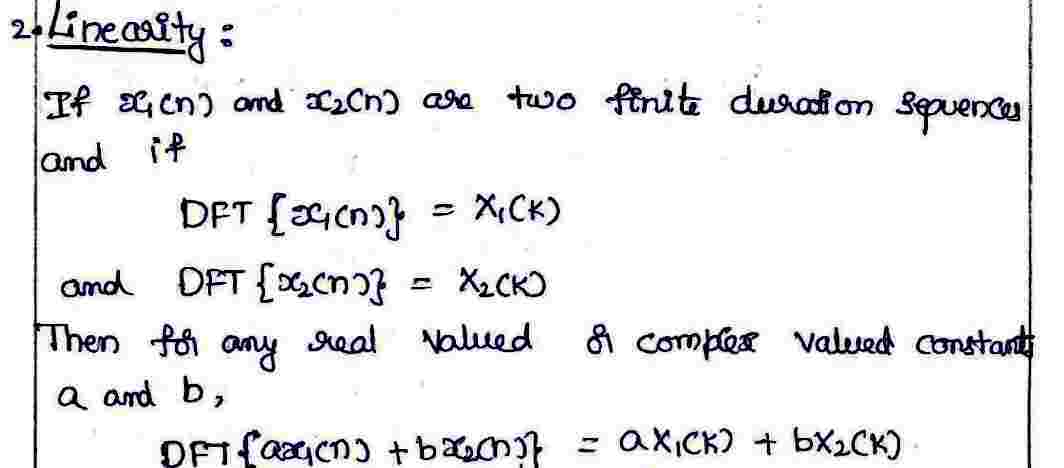 2. Linearity :
If x₁(n) and x₂(n) are two finite duration sequences
and if
DFT {x₁(n)} = X₁(K)
and DFT {x₂(n)} = X₂(K)
Then for any real valued or complex valued constants
a and b,
DFT {ax₁(n) + bx₂(n)} = aX₁(K) + bX₂(K).